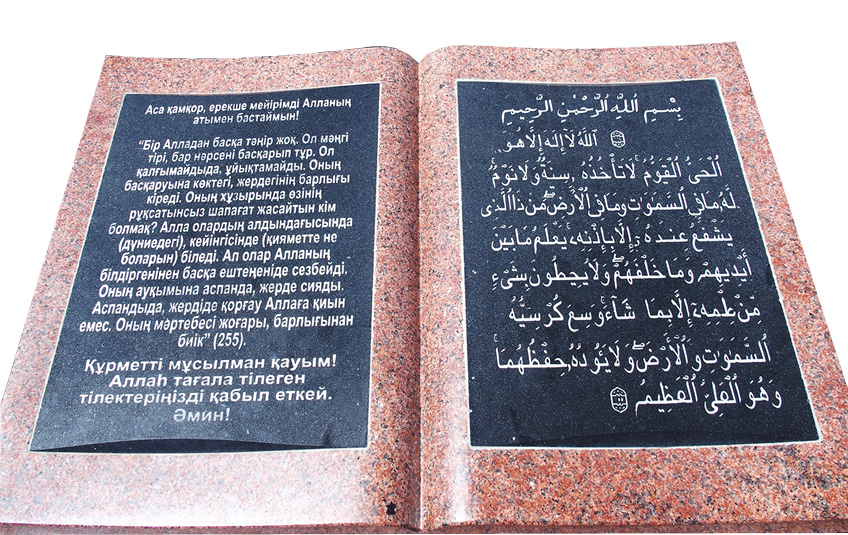 Аса қамқор, ерекше мейірімді Алланың
атымен бастаймын!
“Бір Алладан басқа тәңір жоқ. Ол мәңгі
тірі, бар нәрсені басқарып тұр. Ол
қалғымайдыда, ұйықтамайды. Оның
басқаруына көктегі, жердегінің барлығы
кіреді. Оның хұзырында өзінің
рұқсатынсыз шапағат жасайтын кім
болмақ? Алла олардың алдындағысында
(дүниедегі), кейінгісінде (қияметте не
боларын) біледі. Ал олар Алланың
білдіргенінен басқа ештеңеніде сезбейді.
Оның ауқымына аспанда, жерде сияды.
Аспандыда, жердіде қорғау Аллаға қиын
емес. Оның мәртебесі жоғары, барлығынан
биік” (255).
Құрметті мұсылман қауым!
Аллаһ тағала тілеген
тілектеріңізді қабыл еткей.
Әмин!
بِسْمِ اللهِ الرَّحْمٰنِ الرَّحِيمِ
اَللهُ لَا إِلٰهَ إِلَّا هُوَ
الْحَيُّ الْقَيُّومُ لَا تَأْخُذُهُ سِنَةٌ وَلَا نَوْمٌ
لَهُ مَا فِي السَّمٰوٰتِ وَمَا فِي الْأَرْضِ مَنْ ذَا الَّذِي
يَشْفَعُ عِنْدَهُ إِلَّا بِإِذْنِهِ يَعْلَمُ مَا بَيْنَ
أَيْدِيهِمْ وَمَا خَلْفَهُمْ وَلَا يُحِيطُونَ بِشَيْءٍ
مِنْ عِلْمِهِ إِلَّا بِمَا شَآءَ وَسِعَ كُرْسِيُّهُ
السَّمٰوٰتِ وَالْأَرْضَ وَلَا يَئُودُهُ حِفْظُهُمَا
وَهُوَ الْعَلِيُّ الْعَظِيمُ